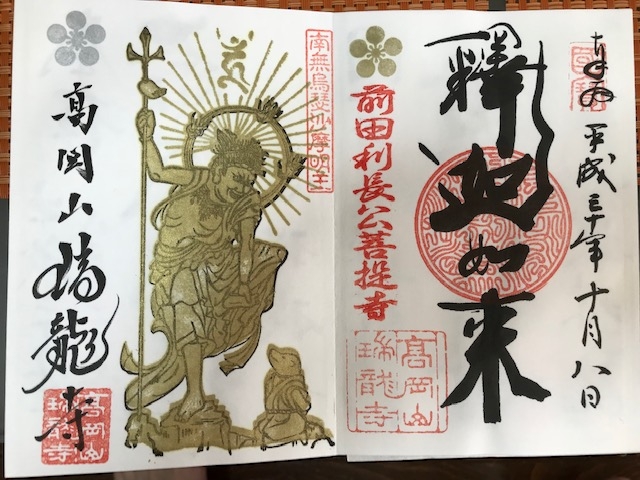 奉拝
平成三十年十月八日
釋迦如来
前田利長公菩提寺
高岡山
瑞龍寺
南無烏瑟沙摩明王
高岡山瑞龍寺
高岡山
瑞龍寺